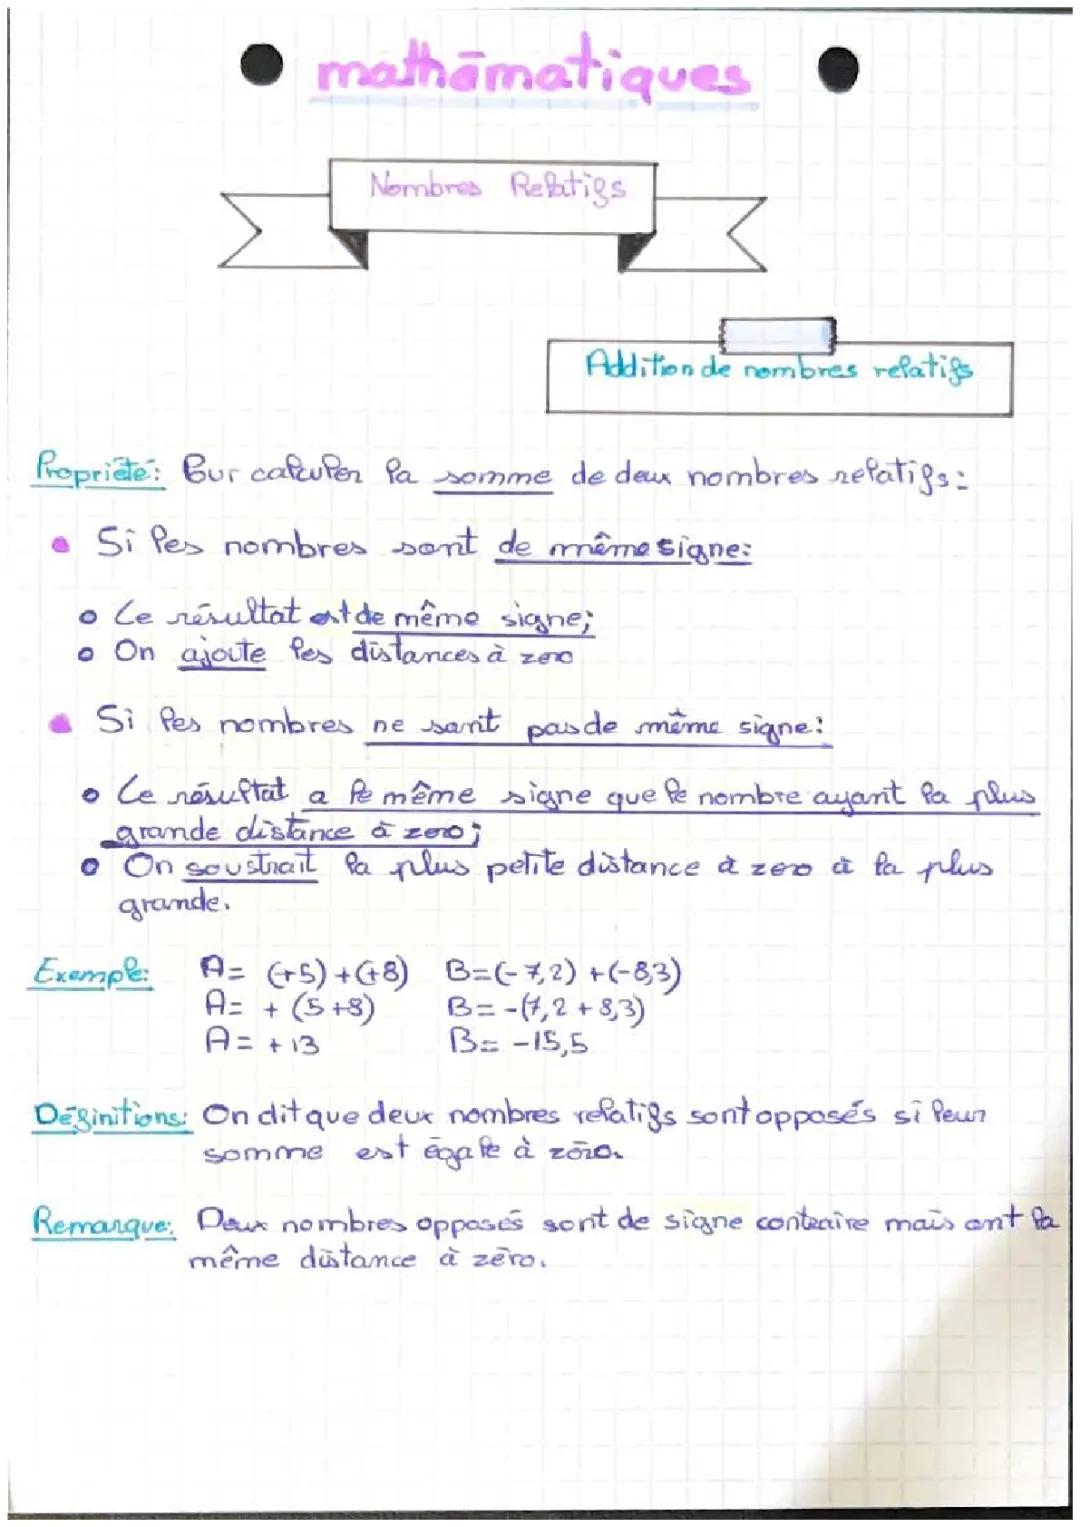 mathématiques
Nombres Relatifs
Addition de nombres relatifs
Propriété: Pour calculer la somme de deux nombres relatifs:
Si les nombres sont de même signe:
Le résultat est de même signe;
On ajoute les distances à zero
Si les nombres ne sont pas de même signe:
Le résultat a le même signe que le nombre ayant la plus
grande distance à zero;
On soustrait la plus petite distance à zero à la plus
grande.
Exemple: A= (+5)+(+8) B=(-7,2)+(-8,3)
A= + (5+8) B= -(7,2+8,3)
A= +13 B= -15,5
Définitions: On dit que deux nombres relatifs sont opposés si leur
somme est égale à zéro.
Remarque: Deux nombres opposés sont de signe contraire mais ont la
même distance à zéro.